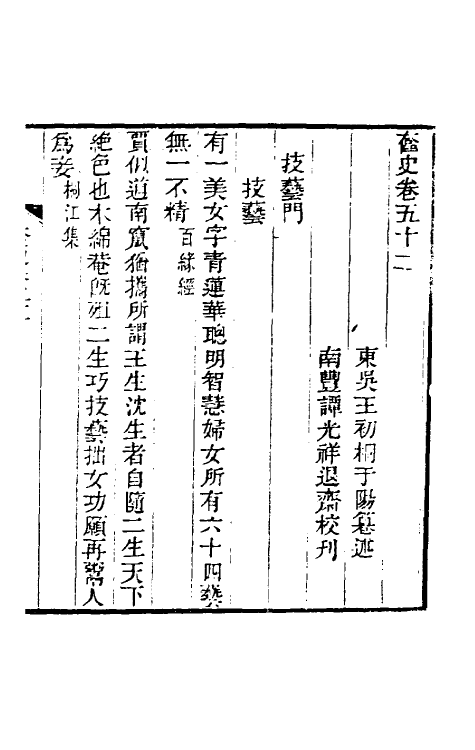 奩史卷五十二
東吳王初桐于陽纂述
南豐譚光祥退齋校刊
技藝門
技藝
有一美女字青蓮華聰明智慧婦女所有六十四藝
無一不精百緣經
賈似道南竄猶攜所謂王生沈生者自隨二生天下
絕色也木綿菴既殂二生巧技藝拙女功願再鬻人
為妾桐江集